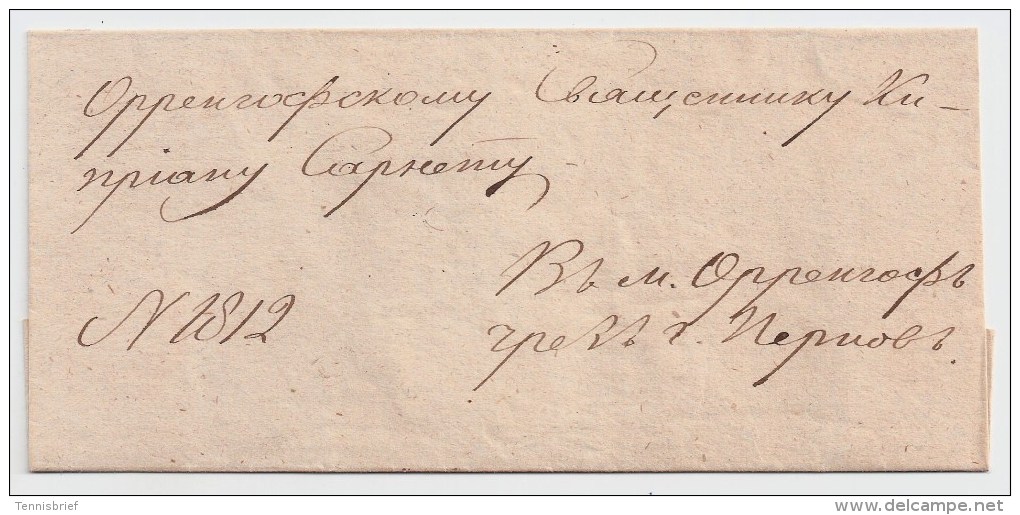 Орренгофскому Священнику Ки-
пріану Сарнету
Въ м. Орренгофъ
чрезъ г. Перновъ.
N 1812
Tennisbrief
delcampe.net